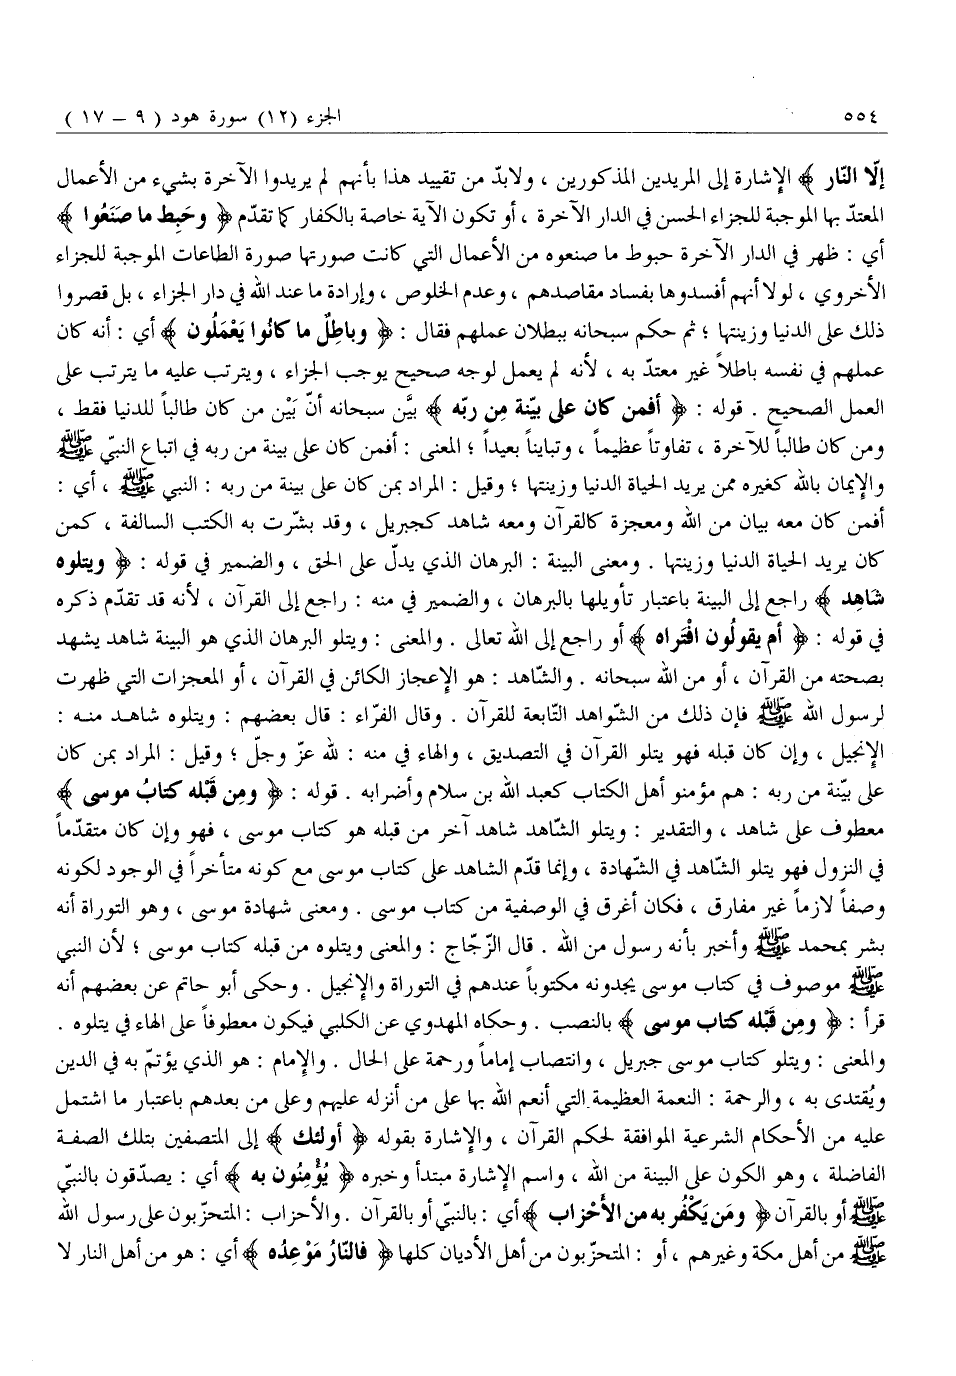 ٥٥٤ الجزء (١٢) سورة هود ( ٩ – ١٧ )
إلّا النّار ﴾ الإشارة إلى المريدين المذكورين ، ولابدّ من تقييد هذا بأنهم لم يريدوا الآخرة بشيء من الأعمال
المعتدّ بها الموجبة للجزاء الحسن في الدار الآخرة ، أو تكون الآية خاصة بالكفار كما تقدّم ﴿ وحَبِط ما صَنَعُوا ﴾
أي : ظهر في الدار الآخرة حبوط ما صنعوه من الأعمال التي كانت صورتها صورة الطاعات الموجبة للجزاء
الأخروي ، لولا أنهم أفسدوها بفساد مقاصدهم ، وعدم الخلوص ، وإرادة ما عند الله في دار الجزاء ، بل قصروا
ذلك على الدنيا وزينتها ؛ ثم حكم سبحانه ببطلان عملهم فقال : ﴿ وباطِلٌ ما كانُوا يَعْمَلُون ﴾ أي : أنه كان
عملهم في نفسه باطلاً غير معتدّ به ، لأنه لم يعمل لوجه صحيح يوجب الجزاء ، ويترتب عليه ما يترتب على
العمل الصحيح . قوله : ﴿ أفمن كان على بيّنة مِن ربّه ﴾ بيَّن سبحانه أنّ بَيْن من كان طالباً للدنيا فقط ،
ومن كان طالباً للآخرة ، تفاوتاً عظيماً ، وتبايناً بعيداً ؛ المعنى : أفمن كان على بينة من ربه في اتباع النبيّ ﷺ
والإيمان بالله كغيره ممن يريد الحياة الدنيا وزينتها ؛ وقيل : المراد بمن كان على بينة من ربه : النبي ﷺ ، أي :
أفمن كان معه بيان من الله ومعجزة كالقرآن ومعه شاهد كجبريل ، وقد بشّرت به الكتب السالفة ، كمن
كان يريد الحياة الدنيا وزينتها . ومعنى البينة : البرهان الذي يدلّ على الحق ، والضمير في قوله : ﴿ ويتلوه
شاهِد ﴾ راجع إلى البينة باعتبار تأويلها بالبرهان ، والضمير في منه : راجع إلى القرآن ، لأنه قد تقدّم ذكره
في قوله : ﴿ أم يقولُون افْتراه ﴾ أو راجع إلى الله تعالى . والمعنى : ويتلو البرهان الذي هو البينة شاهد يشهد
بصحته من القرآن ، أو من الله سبحانه . والشّاهد : هو الإعجاز الكائن في القرآن ، أو المعجزات التي ظهرت
لرسول الله ﷺ فإن ذلك من الشّواهد التّابعة للقرآن . وقال الفرّاء : قال بعضهم : ويتلوه شاهد منه :
الإنجيل ، وإن كان قبله فهو يتلو القرآن في التصديق ، والهاء في منه : لله عزّ وجلّ ؛ وقيل : المراد بمن كان
على بيّنة من ربه : هم مؤمنو أهل الكتاب كعبد الله بن سلام وأضرابه . قوله : ﴿ ومِن قَبْله كتابُ موسى ﴾
معطوف على شاهد ، والتقدير : ويتلو الشّاهد شاهد آخر من قبله هو كتاب موسى ، فهو وإن كان متقدّماً
في النزول فهو يتلو الشّاهد في الشّهادة ، وإنما قدّم الشاهد على كتاب موسى مع كونه متأخراً في الوجود لكونه
وصفاً لازماً غير مفارق ، فكان أغرق في الوصفية من كتاب موسى . ومعنى شهادة موسى ، وهو التوراة أنه
بشر بمحمد ﷺ وأخبر بأنه رسول من الله . قال الزّجّاج : والمعنى ويتلوه من قبله كتاب موسى ؛ لأن النبي
ﷺ موصوف في كتاب موسى يجدونه مكتوباً عندهم في التوراة والإنجيل . وحكى أبو حاتم عن بعضهم أنه
قرأ : ﴿ ومِن قَبْله كتاب موسى ﴾ بالنصب . وحكاه المهدوي عن الكلبي فيكون معطوفاً على الهاء في يتلوه .
والمعنى : ويتلو كتاب موسى جبريل ، وانتصاب إماماً ورحمة على الحال . والإمام : هو الذي يؤتمّ به في الدين
ويُقتدى به ، والرحمة : النعمة العظيمة التي أنعم الله بها على من أنزله عليهم وعلى من بعدهم باعتبار ما اشتمل
عليه من الأحكام الشرعية الموافقة لحكم القرآن ، والإشارة بقوله ﴿ أولئك ﴾ إلى المتصفين بتلك الصفة
الفاضلة ، وهو الكون على البينة من الله ، واسم الإشارة مبتدأ وخبره ﴿ يُؤْمِنُون به ﴾ أي : يصدّقون بالنبيّ
ﷺ أو بالقرآن ﴿ ومَن يَكْفُر به من الأحْزاب ﴾ أي : بالنبيّ أو بالقرآن . والأحزاب : المتحزّبون على رسول الله
ﷺ من أهل مكة وغيرهم ، أو : المتحزّبون من أهل الأديان كلها ﴿ فالنّارُ مَوْعِدُه ﴾ أي : هو من أهل النار لا